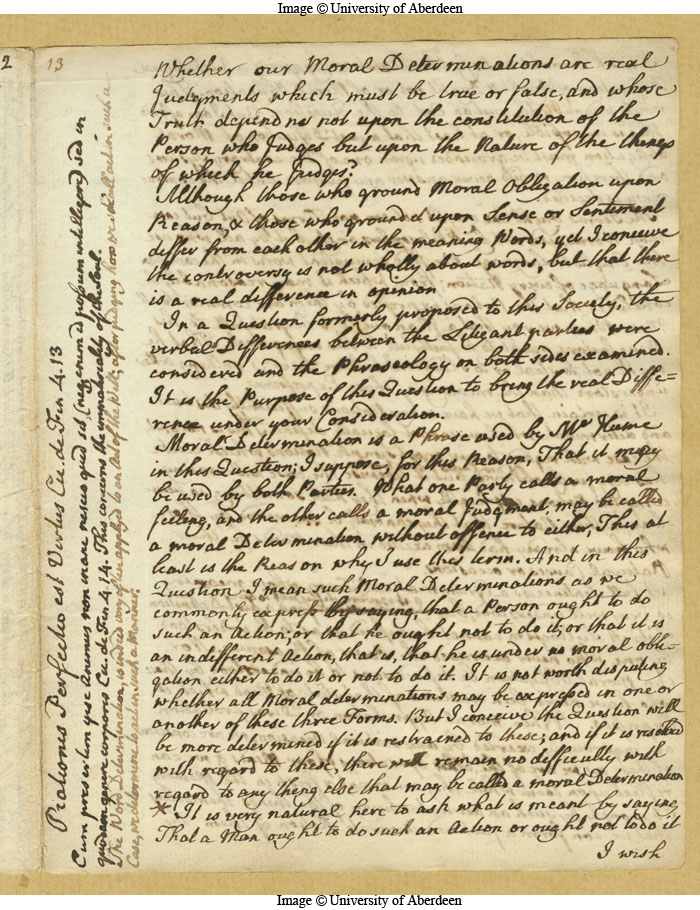 Image © University of Aberdeen
2
13
Whether our Moral Determinations are real
Judgments which must be true or false, and whose
Truth depends not upon the constitution of the
Person who Judges but upon the Nature of the things
of which he Judges?
Although those who ground Moral Obligation upon
Reason, & those who ground it upon Sense or Sentiment
differ from each other in the meaning Words, yet I conceive
the controversy is not wholly about words, but that there
is a real difference in opinion
In a Question formerly proposed to this Society, the
verbal Differences between the Litigant parties were
considered and the Phraseology on both sides examined.
It is the Purpose of this Question to bring the real Diffe=
rence under your Consideration.
Moral Determination is a Phrase used by Mr Hume
in this Question; I suppose, for this Reason, That it may
be used by both Parties. What one Party calls a moral
feeling, and the other calls a moral Judgment, may be called
a moral Determination without offence to either, This at
least is the Reason why I use this term. And in this
Question I mean such Moral Determinations as we
commonly express by saying, that a Person ought to do
such an Action; or that he ought not to do it; or that it is
an indifferent Action, that is, that he is under no moral obli-
gation either to do it or not to do it. It is not worth disputing
whether all Moral determinations may be expressed in one or
another of these three Forms. But I conceive the Question will
be more determined if it is restrained to these; and if it is resolved
with regard to these, there will remain no difficulty with
regard to any thing else that may be called a moral Determination
* It is very natural here to ask what is meant by saying
That a Man ought to do such an Action or ought not to do it
I wish
Rationis Perfectio est Virtus Cic. de Fin 4. 13
Cum praesertim ipse Animus non inane nescio quid sit, (neq enim id possum intelligere) sed in
quodam genere corporis Cic. de Fin 4, 14. This concerns the immateriality of the Soul.
The Word Determination, is indeed very often applied to an Act of the Will; after judging how we shall act in such a
Case, we determine to act in such a Manner.
Image © University of Aberdeen